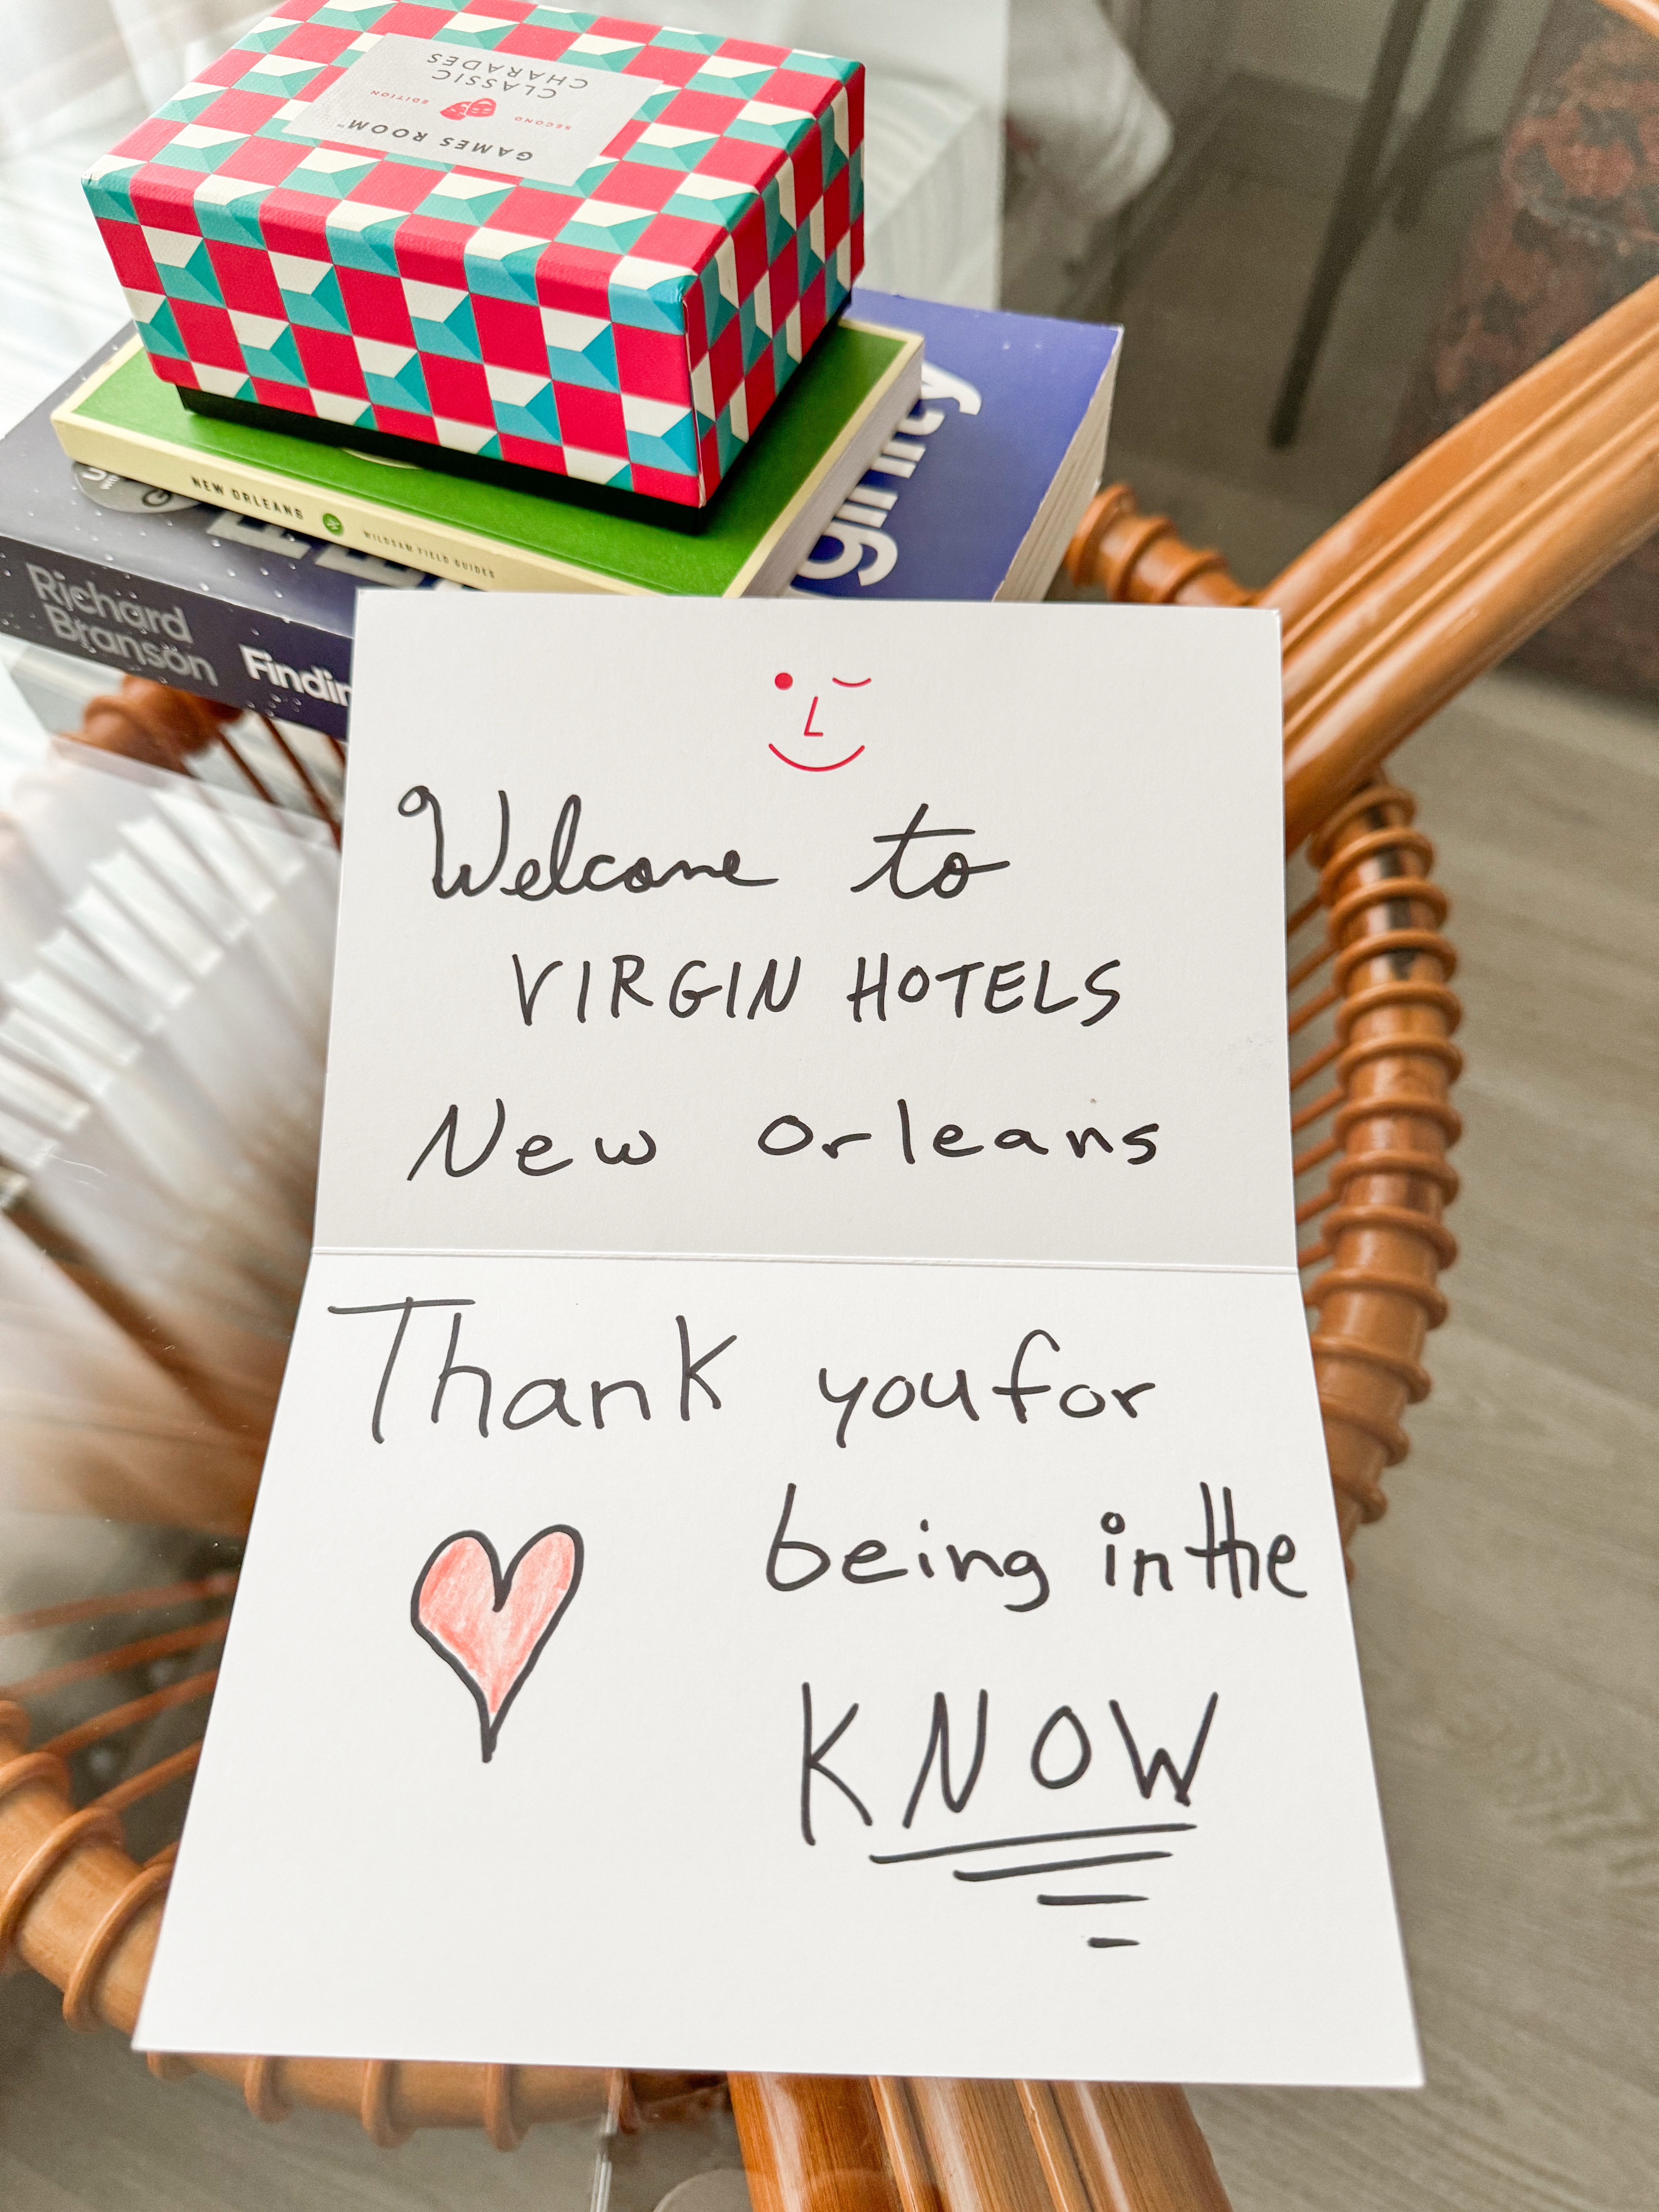 GAMES ROOM™
SECOND EDITION
CLASSIC
CHARADES
NEW ORLEANS WILDSAM FIELD GUIDES
Richard
Branson
Welcome to
VIRGIN HOTELS
New Orleans
Thank you for
being in the
KNOW